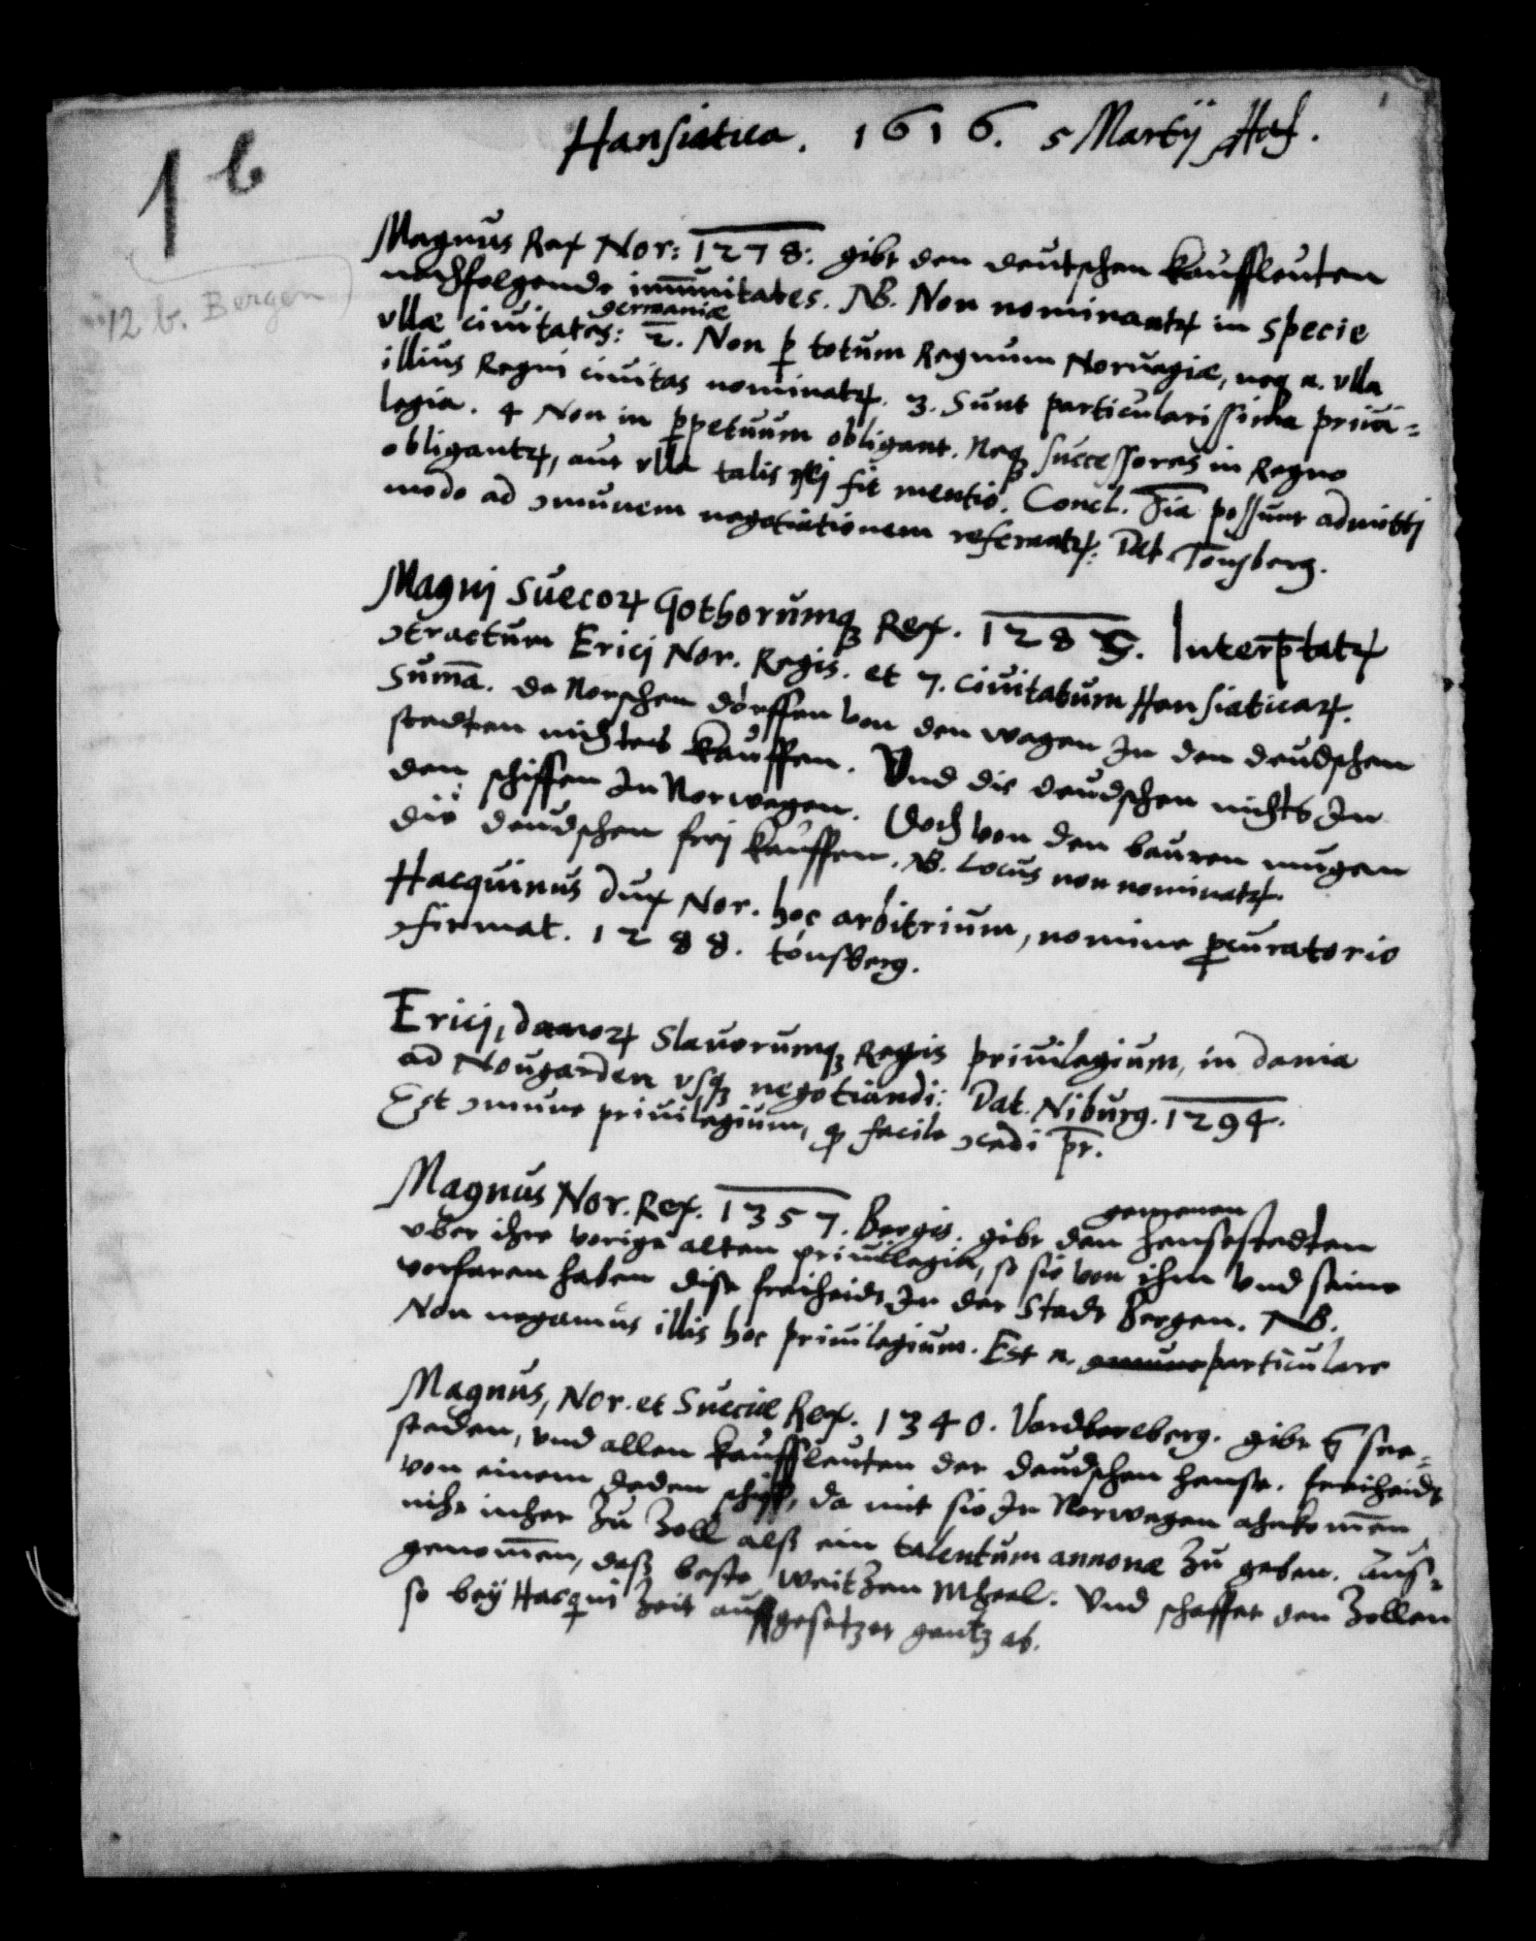 Hansiatica. 1616. 5 Martij Haf.
1 b
12 b. Bergen
Magnus Rex Nor: 1278: gibt den deutschen Kauffleuten
nachfolgende imunitates. NB. Non nominantr in specie
germaniæ
vllæ ciuitates: 2. Non p totum Regnum Noruagiæ, neq n. vlla
illius Regni ciuitas nominatr. 3. Sunt particularissima priui=
legia. 4 Non in ppetuum obligant. Neq successores in Regno
obligantr, aut vlla talis fit mentio. Concl. possunt admitti
modo ad comunem negotiationem referantr: Dat Tonsberg.
Magnj Suecor Gothorumq Rex. 1285. Interptatr
contractum Ericj Nor. Regis. et 7. ciuitatum Hansiaticar.
Suma. De Norschen dörffen von den wagen In den deudschen
stedten nichtes Kauffen. Vnd die deudschen nichts In
den schiffen In Norwegen. Doch von den bauren mugen
die deudschen frej kauffen. NB. Locus non nominatr.
Hacquinus Dux Nor. hoc arbitrium, nomine pcuratorio
confirmat. 1288. tonsberg.
Ericj, danor Slauorumq Regis priuilegium, in dania
ad Nougarden vsq negotiandi: Dat. Niburg. 1294.
Est comune priuilegium, q facile concedi pt.
Magnus Nor. Rex. 1357. Bergis. gibt den hensestedten
gemenen
vber ihre vorige alten priuilegia, so sie von ihm vnd seine
vorfaren haben dise freiheidt In der Stadt Bergen. NB.
Non negamus illis hoc priuilegium. Est n. comune particulare
Magnus, Nor. et Sueciæ Rex. 1340. Vardberberg. gibt see=
steden, vnd allen kauffleuten der deudschen hense. freiheidt
von einem Jeden schiff, da mit sie In Norwegen ahnkomen
niht mher zu Zoll alß ein talentum annonæ zu geben. Auß=
genomen, daß beste weitzen Mheel. Vnd schaffet den Zollen
so beÿ Hacquini Zeit auffgesetzet gantz ab.